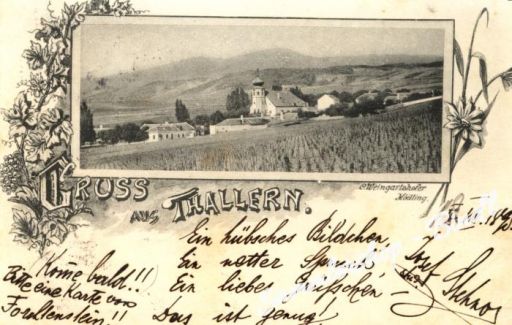 GRUSS
AUS THALLERN.
C. Weingartshofer
Mödling.
Ein hübsches Bildchen,
Ein netter Spruch,
Ein liebes Grüßchen
Das ist genug!
Josef
Kome bald!!)
Bitte eine Karte von
Forchtenstein!!